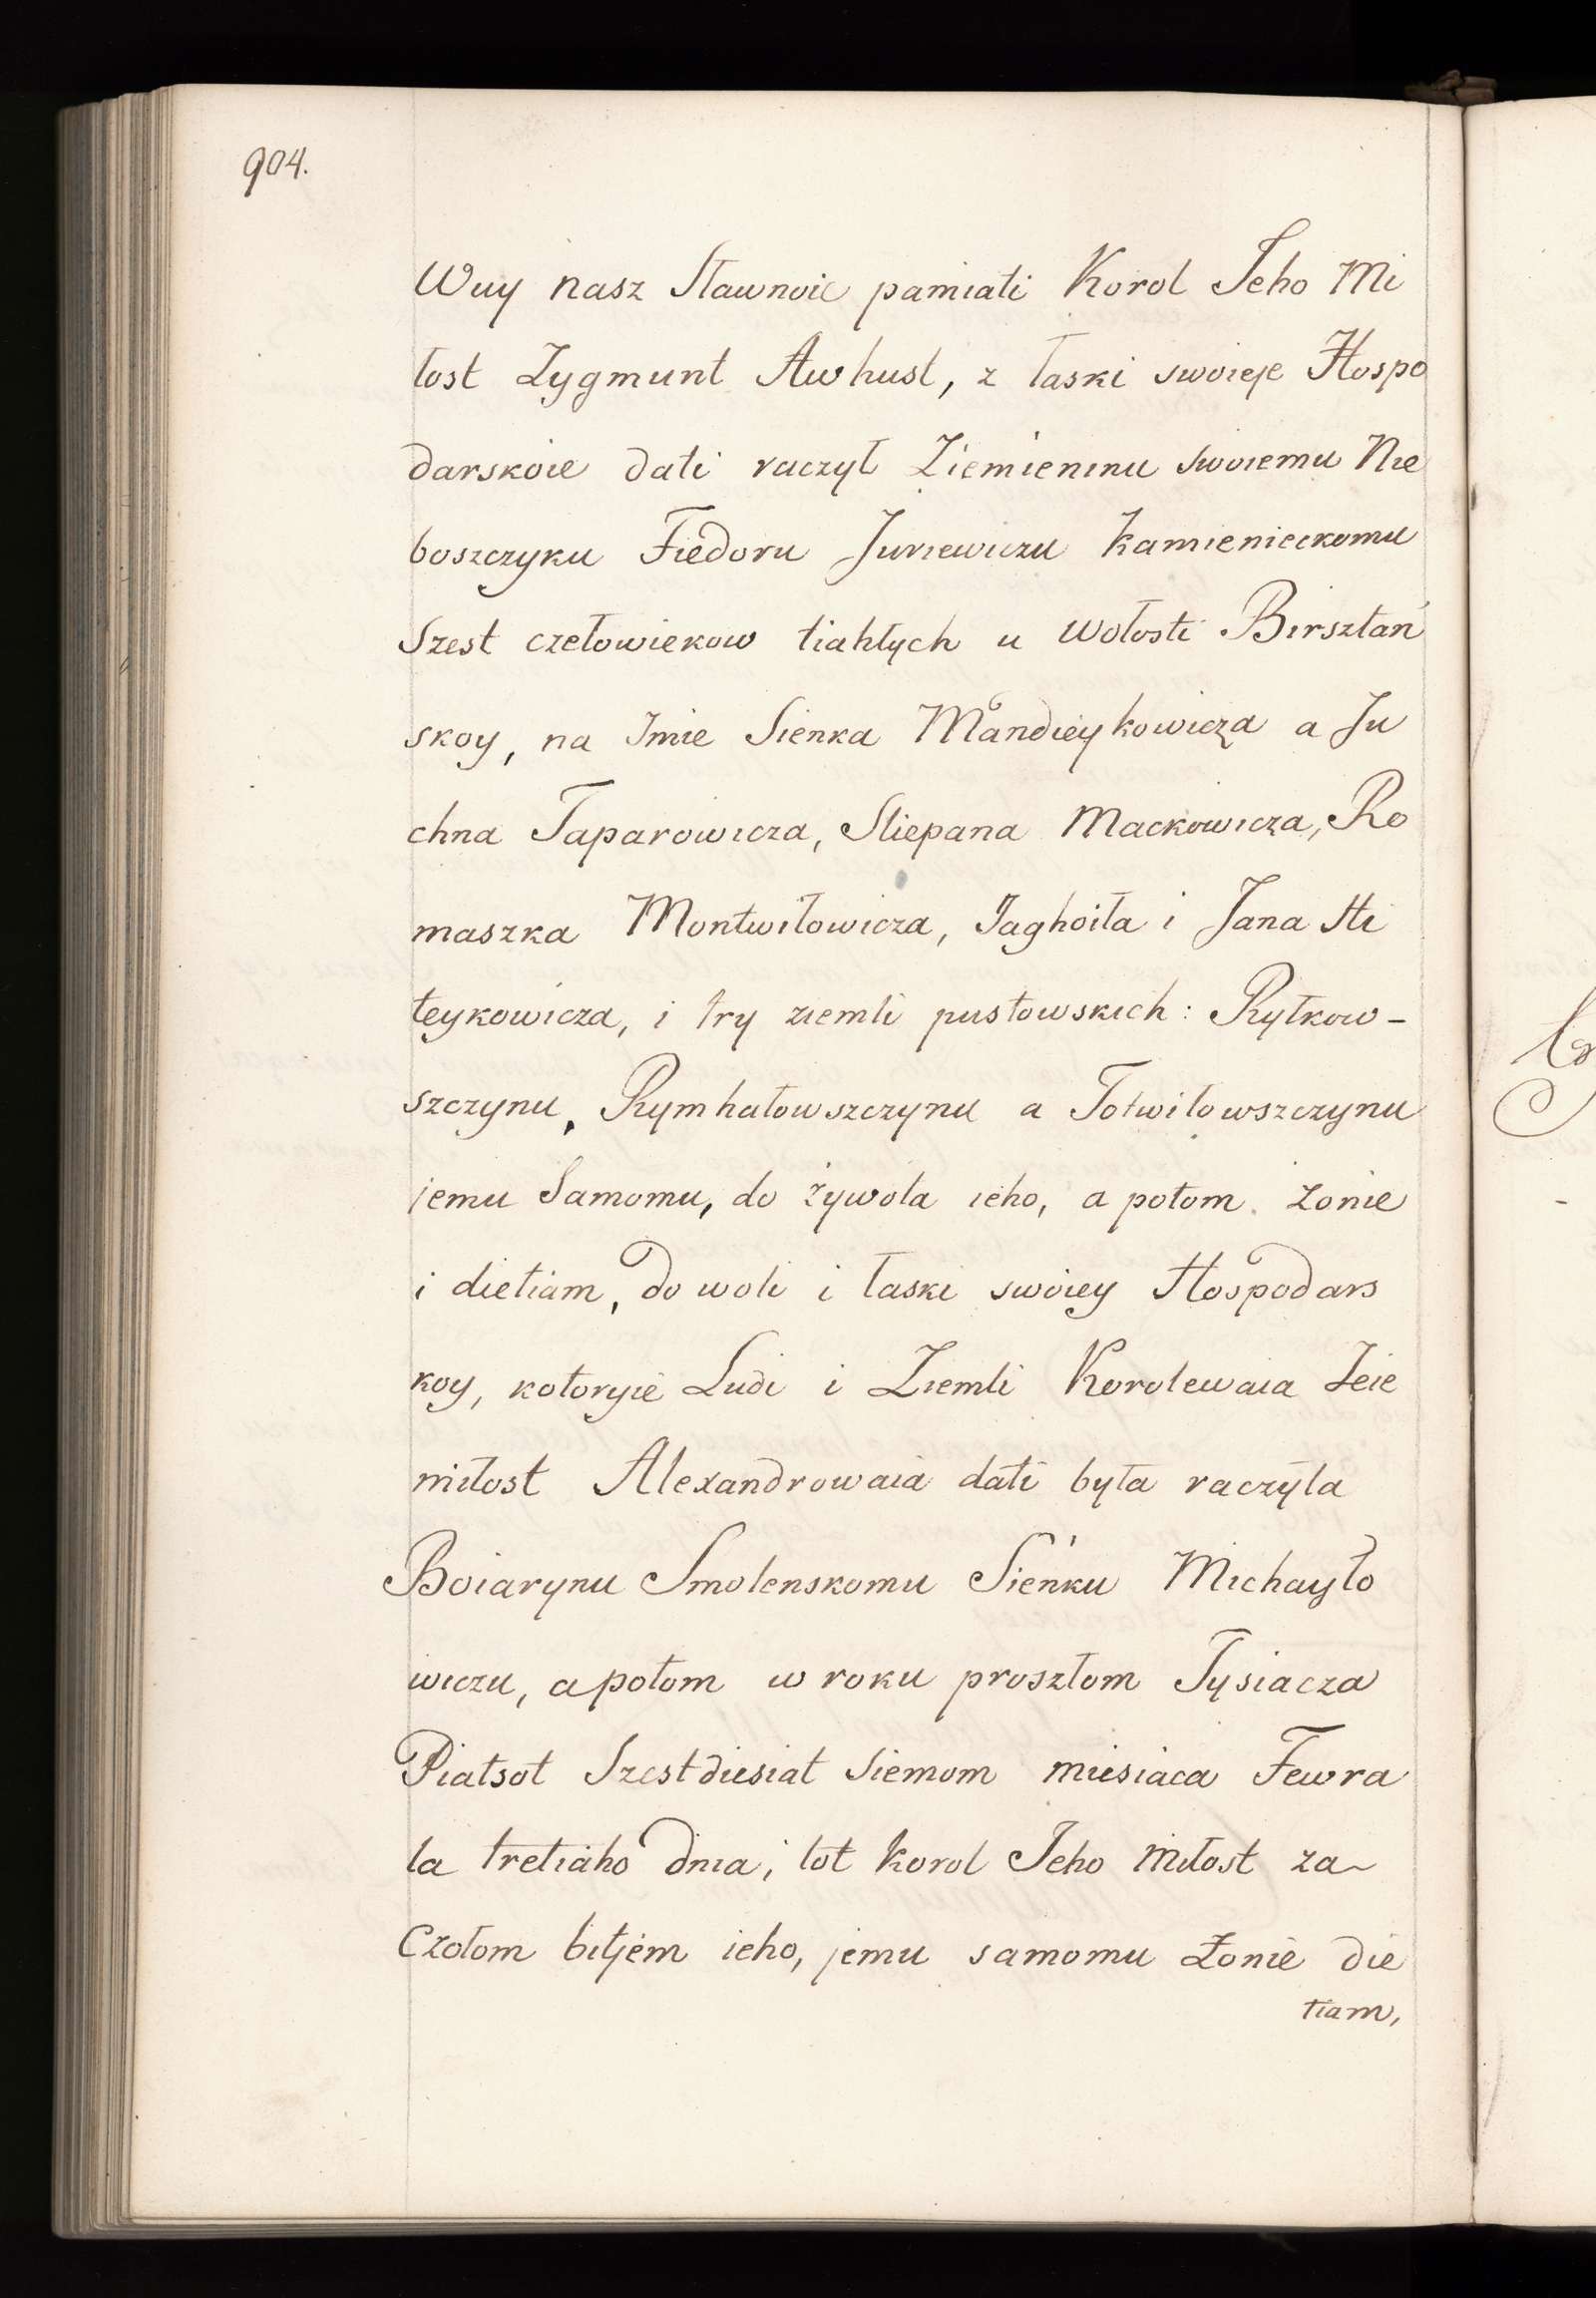 904.
Wuy nasz Sławnoie pamiati Korol Jeho Mi
łost Zygmunt Awhust, z łaski swoieje Hospo
darskoie dati raczył Ziemieninu swoiemu Nie
boszczyku Fiedoru Juriewiczu Kamienieckomu
Szest czełowiekow tiahłych u wołosti Birsztań
skoy, na Imie Sienka Mandieykowicza a Ju
chna Taparowicza, Stiepana Mackowicza, Ro
maszka Montwiłowicza, Jaghoiła i Jana Hi
teykowicza, i try ziemli pustowskich: Rytkow-
szczynu, Rymhałowszczynu a Totwiłowszczynu
jemu Samomu, do żywota ieho, a potom żonie
i dietiam, do woli i łaski swoiey Hospodars
koy, kotoryie Ludi i Ziemli Korolewaia Jeie
miłost Alexandrowaia dati była raczyła
Boiarynu Smolenskomu Sieńku Michayło
wiczu, a potom w roku proszłom Tysiacza
Piatsot Szestdiesiat Siemom miesiaca Fewra
la tretiaho dnia, tot Korol Jeho Miłost za
Czołom bitjem ieho, jemu samomu Żonie die
tiam,